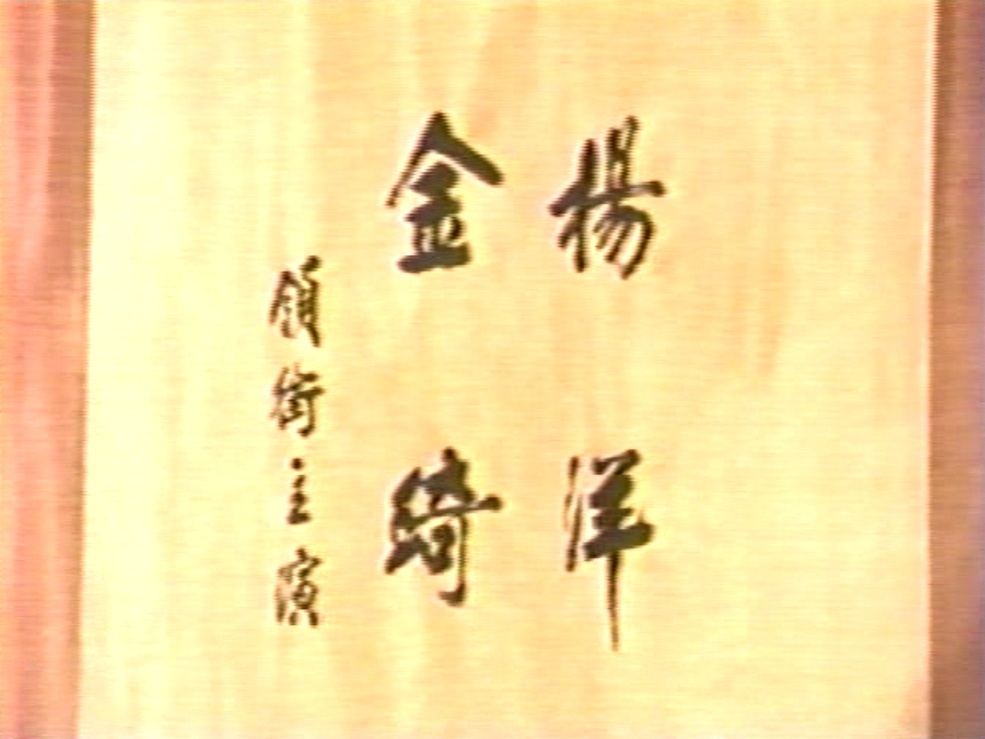 楊洋
金綺
領銜主演